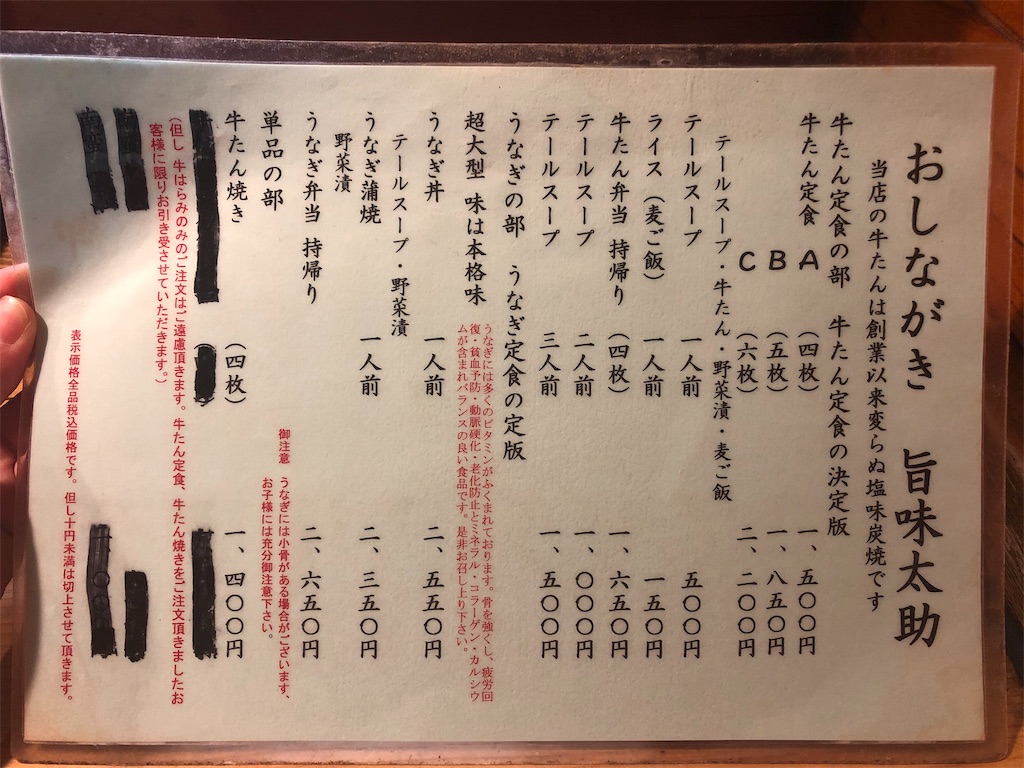 おしながき 旨味太助
当店の牛たんは創業以来変らぬ塩味炭焼です
牛たん定食の部 牛たん定食の決定版
牛たん定食 A (四枚) 一、五〇〇円
B (五枚) 一、八五〇円
C (六枚) 二、二〇〇円
テールスープ・牛たん・野菜漬・麦ご飯
テールスープ 一人前 五〇〇円
ライス(麦ご飯) 一人前 一五〇円
牛たん弁当 持帰り (四枚) 一、六五〇円
テールスープ 二人前 一、〇〇〇円
テールスープ 三人前 一、五〇〇円
うなぎの部 うなぎ定食の定版
超大型 味は本格味
うなぎには多くのビタミンがふくまれております。骨を強くし、疲労回
復・貧血予防・動脈硬化・老化防止とミネラル・コラーゲン・カルシウ
ムが含まれバランスの良い食品です。是非お召し上り下さい。
うなぎ丼 一人前 二、五五〇円
テールスープ・野菜漬
うなぎ蒲焼 一人前 二、三五〇円
野菜漬
うなぎ弁当 持帰り 二、六五〇円
御注意 うなぎには小骨がある場合がございます、
お子様には充分御注意下さい。
単品の部
牛たん焼き (四枚) 一、四〇〇円
(但し 牛はらみのみのご注文はご遠慮頂きます。牛たん定食、牛たん焼きをご注文頂きましたお
客様に限りお引き受させていただきます。)
表示価格全品税込価格です。但し十円未満は切上させて頂きます。